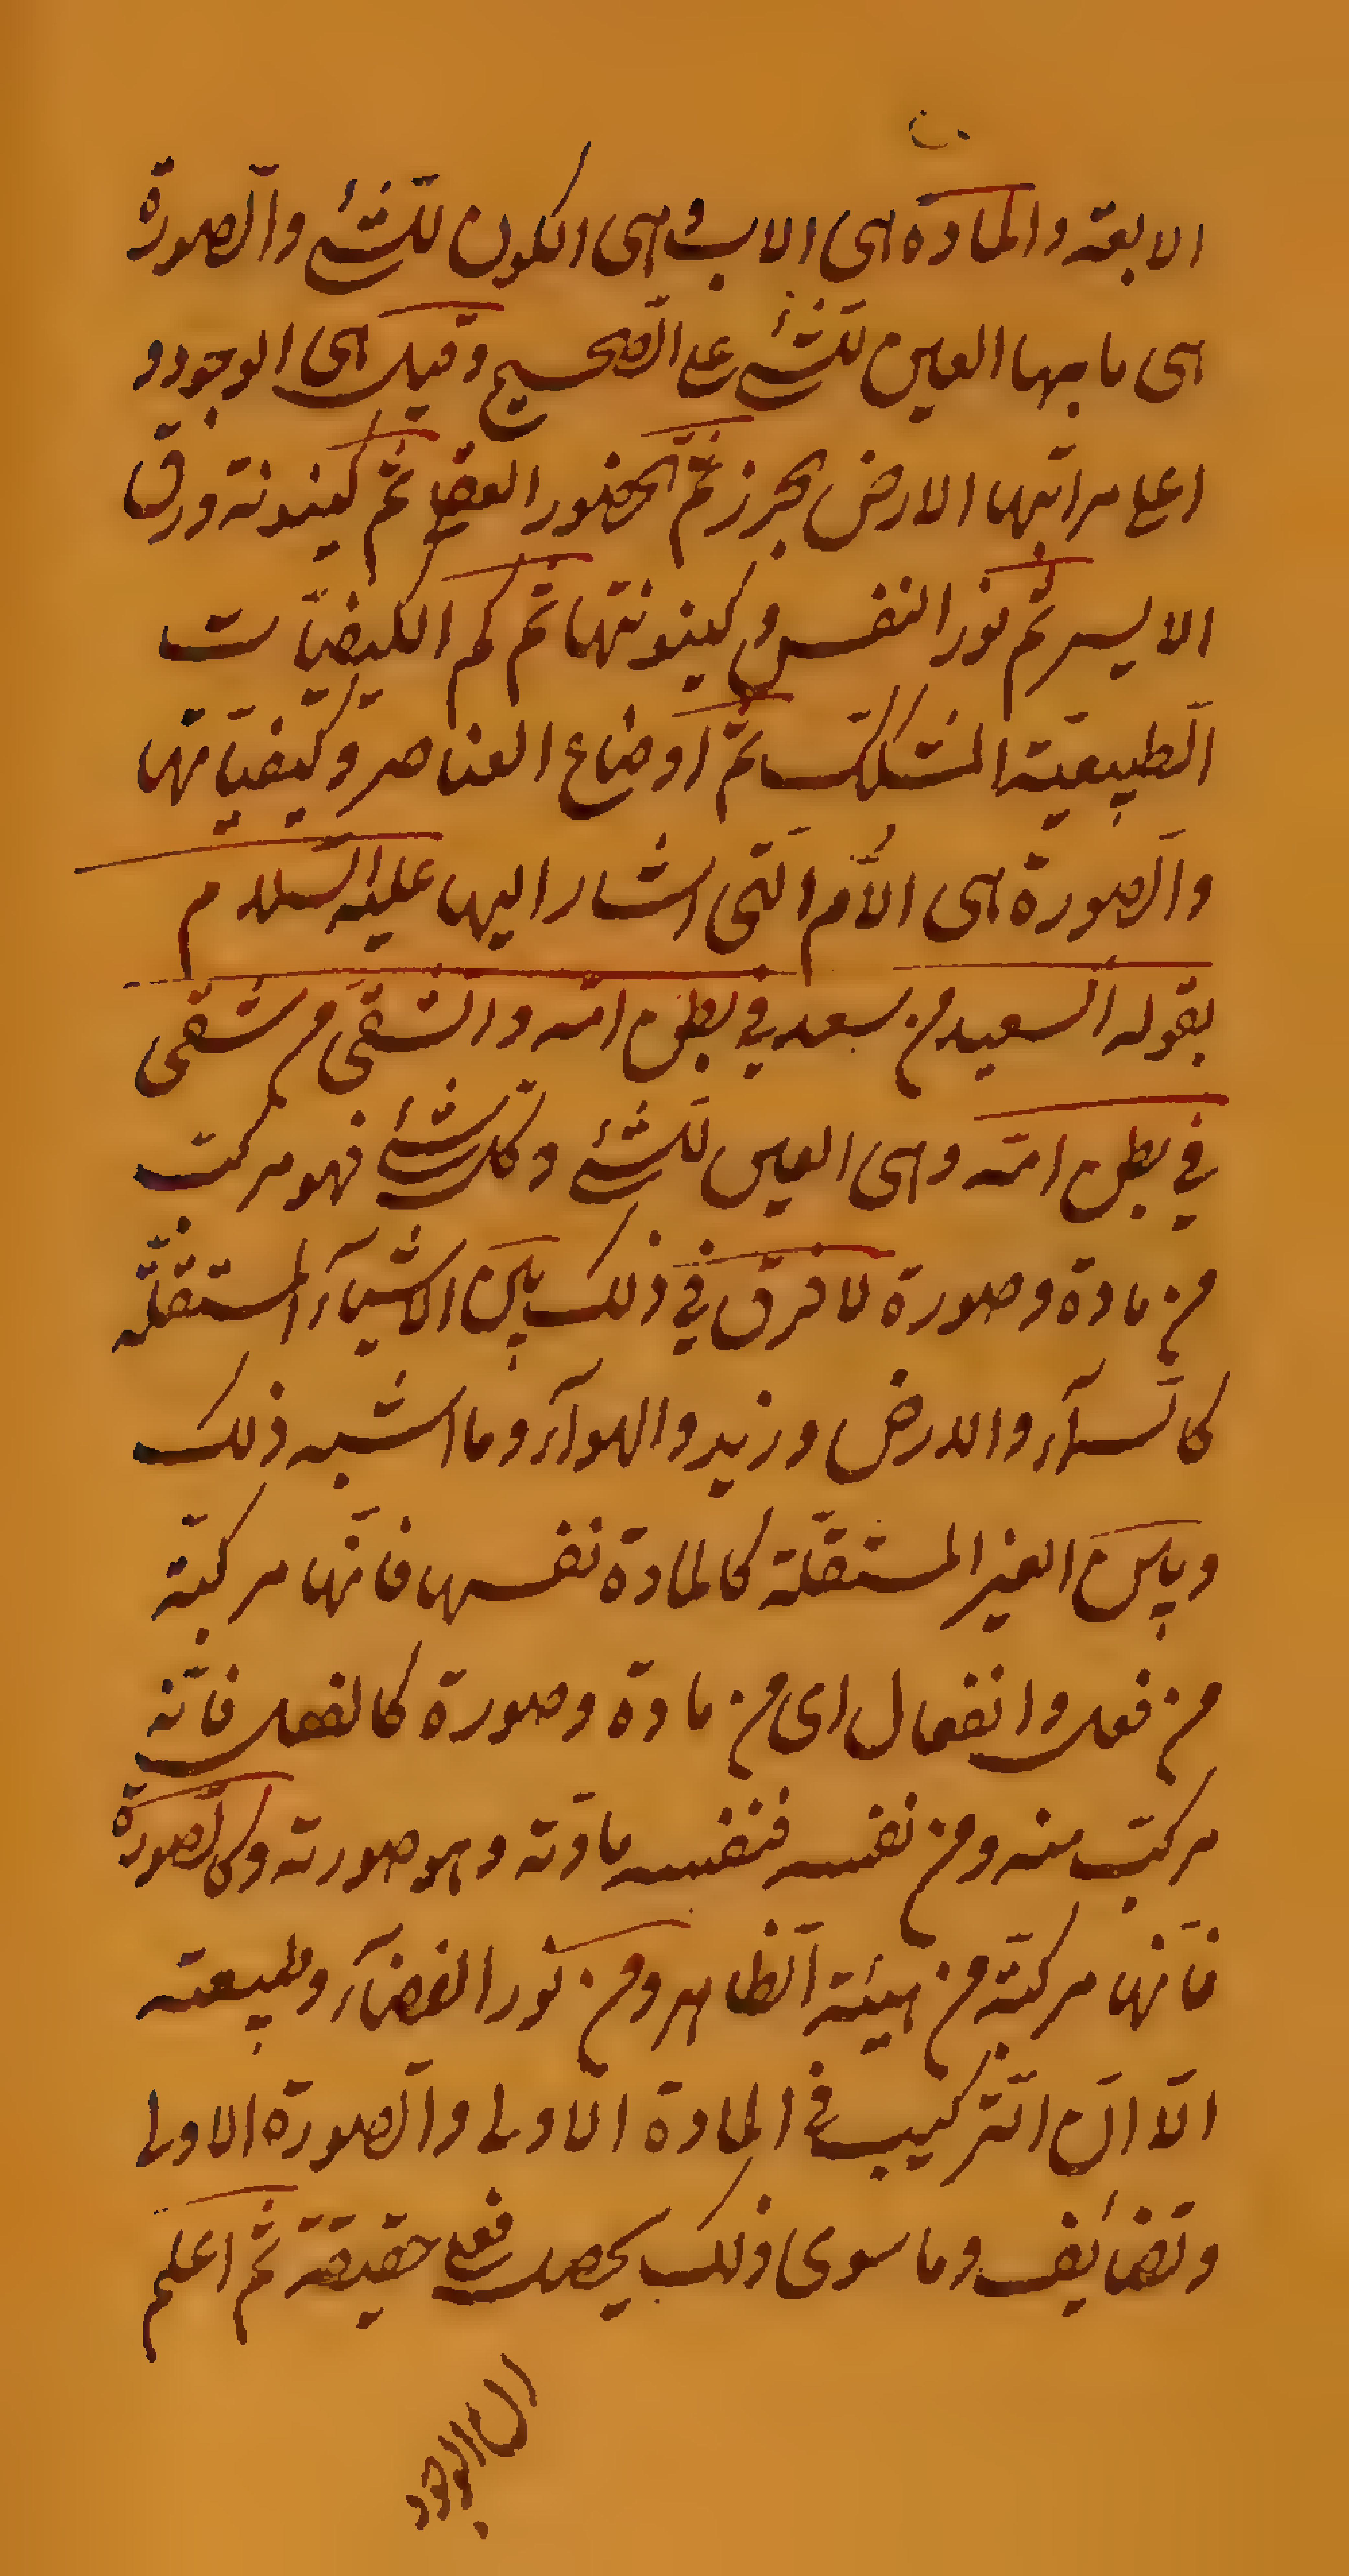 الابعة والمادة هى الاب وهى الكون للشئ والصورة
هى ما بها العين للشئ على الصحيح وقيل هى الوجود و
اعلى مراتبها الارض الجرز ثم الحضور ثم كينونة ورق
الايسر ثم نور النفس وكينونتها ثم كم الكيفيّات
الطبيعيّة ثم اوضاع العناصر وكيفيّاتها
والصورة هى الأم التى اشار اليها عليه السلام
بقوله السعيد من سعد في بطن امّه والشقىّ من شقى
في بطن امّه وهى العين للشئ وكل شئ فهو مركب
من مادة وصورة لا فرق في ذلك بين الاشياء المستقلّة
كالسماء والارض وزيد والهوآء وما اشبه ذلك
وبين الغير المستقلّة كالمادة نفسها فانّها مركبّة
من فعل وانفعال اى من مادة وصورة كالفعل فانّه
مركب منه ومن نفسه فنفسه مادّته وهو صورته وكالصورة
فانّها مركبّة من هيئة الظاهر ومن نور الفضآء وطبيعته
الّا انّ التركيب في المادة الاولى والصورة الاولى
وتضايف وما سوى ذلك يحصل فعلى حقيقة ثم اعلم
ان الوجود